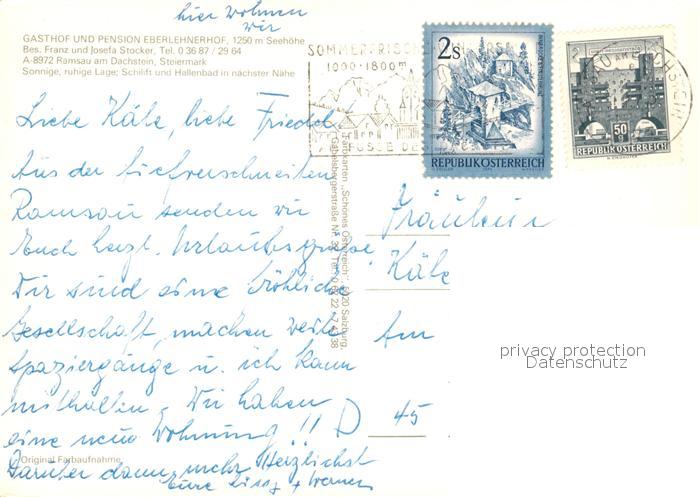 hier wohnen
wir
GASTHOF UND PENSION EBERLEHNERHOF, 1250 m Seehöhe
Bes. Franz und Josefa Stocker, Tel. 0 36 87 / 29 64
A-8972 Ramsau am Dachstein, Steiermark
Sonnige, ruhige Lage; Schilift und Hallenbad in nächster Nähe
SOMMERFRISCHE
1000-1800 m
AM FUSSE DE
2s
REPUBLIK ÖSTERREICH
50 g
REPUBLIK ÖSTERREICH
Liebe Käle, liebe Friedel
Aus der tiefverschneiten
Ramsau senden wir
Euch herzl. Urlaubsgrüße
Wir sind eine fröhliche
Gesellschaft, machen weite
Spaziergänge u. ich kann
mithalten. Wir haben
eine neue Wohnung!!
Darüber dann mehr Herzlichst
Eure + Werner
Farbkarten „Schönes Österreich", 5020 Salzburg,
Gabelsbergerstraße Nr.
Fräulein
Käle
Am
D 45
privacy protection
Datenschutz
Original Farbaufnahme